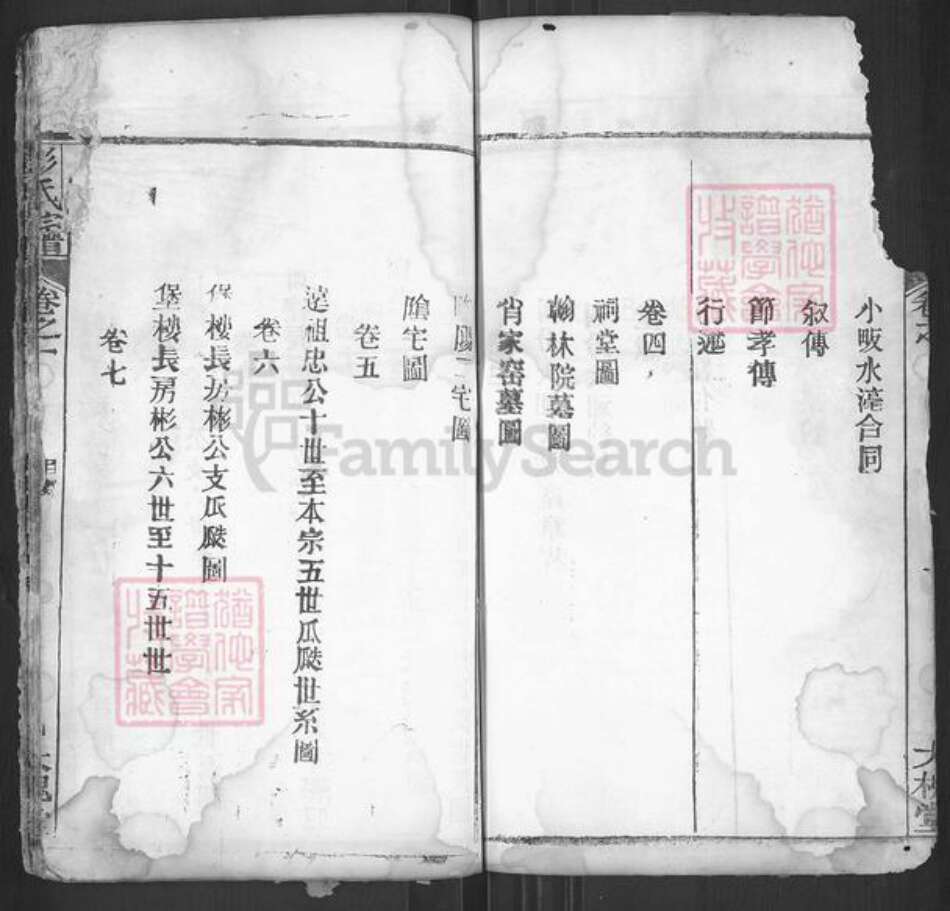 小畈水滝合同
叙傳
節孝傳
行述
卷四
祠堂圖
翰林院墓圖
肖家窑墓圖
陽二宅圖
陰宅圖
卷五
遠祖忠公十世至本宗五世瓜瓞世系圖
卷六
保樓長房彬公支瓜瓞圖
堡樓長房彬公六世至十五世世
卷七
彭氏宗譜
卷之一
大槐堂
FamilySearch
譜學會
收藏
譜學會
收藏